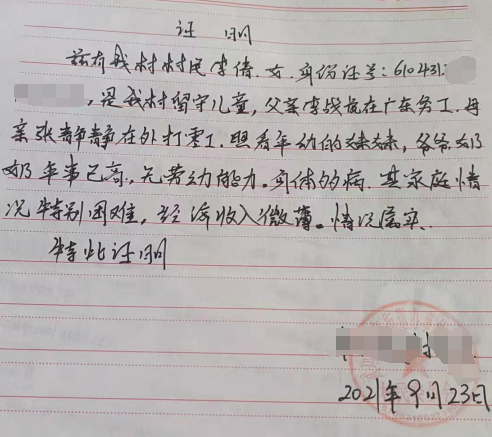 证明
兹有我村村民李倩.女.身份证号:610431
,是我村留守儿童,父亲李战虎在广东务工.母
亲张静静在外打零工.照看年幼的妹妹,爷爷奶
奶年事已高,无劳动能力.身体多病.其家庭情
况特别困难,经济收入微薄。情况属实.
特此证明
村
2021年9月23日